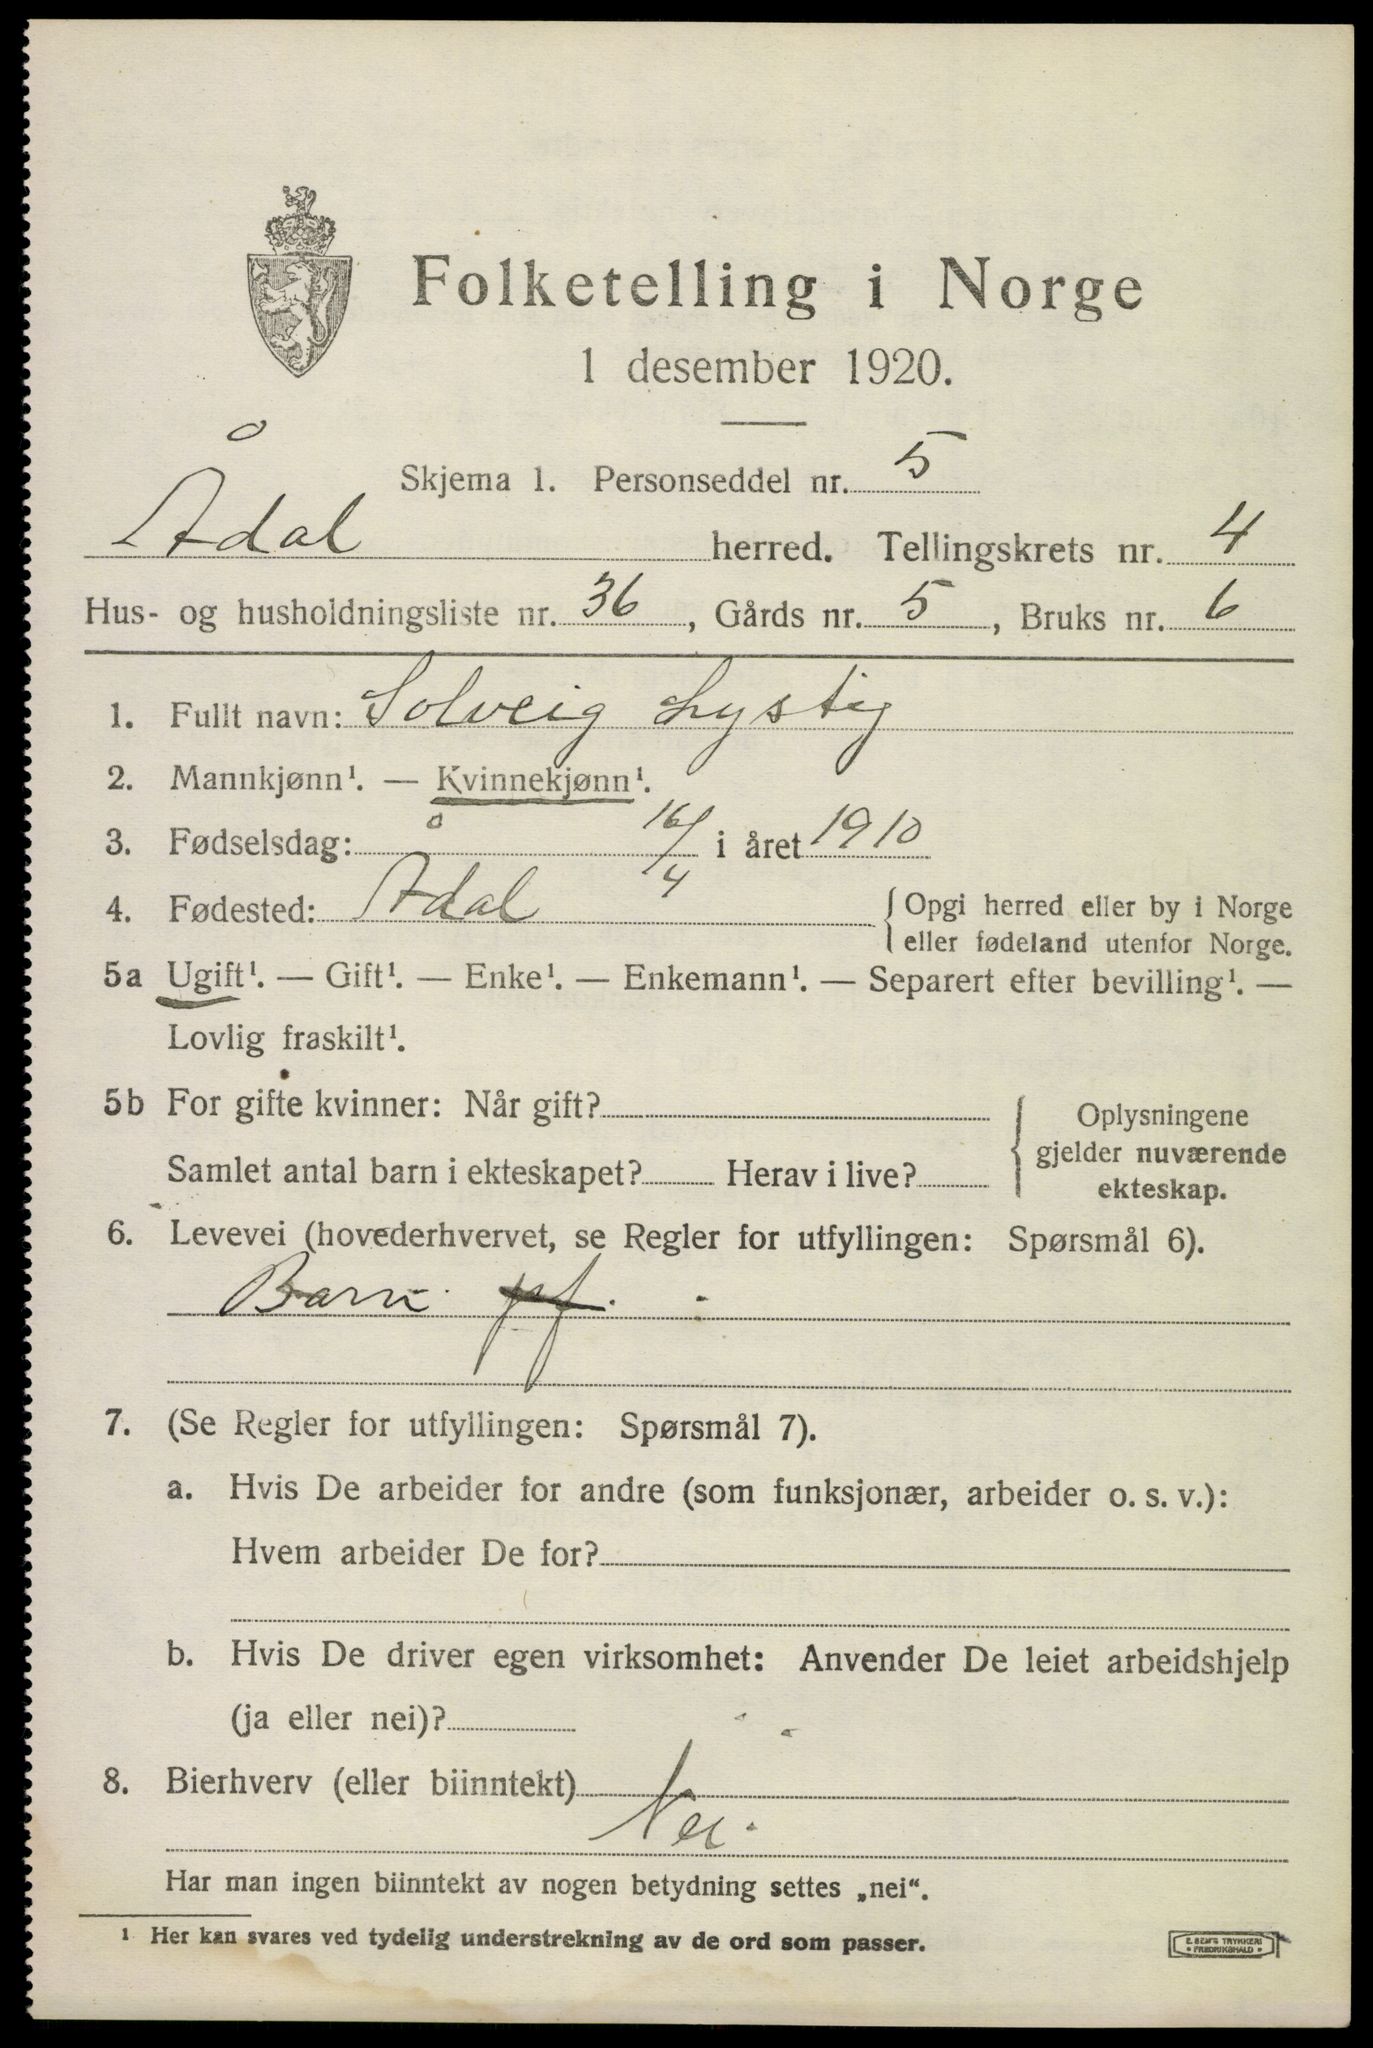 Folketelling i Norge
1 desember 1920.
Skjema 1. Personseddel nr. 5
Ådal herred. Tellingskrets nr. 4
Hus- og husholdningsliste nr. 36, Gårds nr. 5, Bruks nr. 6
1. Fullt navn: Solveig Lystig
2. Mannkjønn¹. — Kvinnekjønn¹.
3. Fødselsdag: 16/4 i året 1910
4. Fødested: Ådal { Opgi herred eller by i Norge
eller fødeland utenfor Norge.
5a Ugift¹. — Gift¹. — Enke¹. — Enkemann¹. — Separert efter bevilling¹. —
Lovlig fraskilt¹.
5b For gifte kvinner: Når gift?
Samlet antal barn i ekteskapet? Herav i live?
Oplysningene
gjelder nuværende
ekteskap.
6. Levevei (hovederhvervet, se Regler for utfyllingen: Spørsmål 6).
Barn. pf.
7. (Se Regler for utfyllingen: Spørsmål 7).
a. Hvis De arbeider for andre (som funksjonær, arbeider o. s. v.):
Hvem arbeider De for?
b. Hvis De driver egen virksomhet: Anvender De leiet arbeidshjelp
(ja eller nei)?
8. Bierhverv (eller biinntekt)
Nei.
Har man ingen biinntekt av nogen betydning settes „nei“.
¹ Her kan svares ved tydelig understrekning av de ord som passer.
E. SEM'S TRYKKERI
• FREDRIKSHALD •